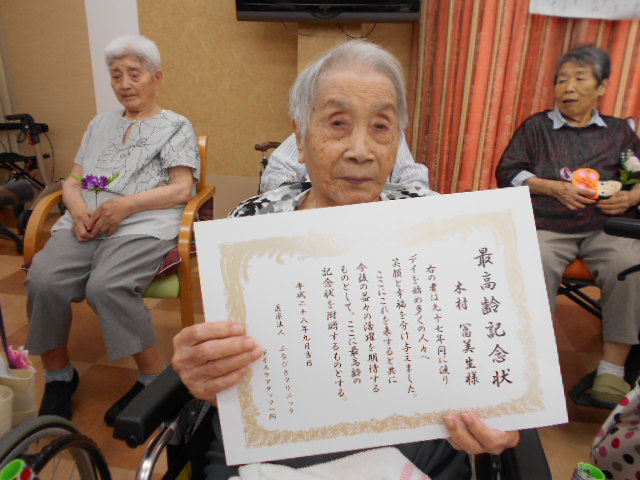 最高齢記念状
木村 富美生様
右の者は九十七年間に渡り
デイを始め多くの人々へ
笑顔と幸福を分け与えました。
ここにこれを表すると共に
今後の益々の活躍を期待する
ものとして、ここに最高齢の
記念状を附贈するものとする。
平成二十八年九月吉日
医療法人
デイスタッフ一同